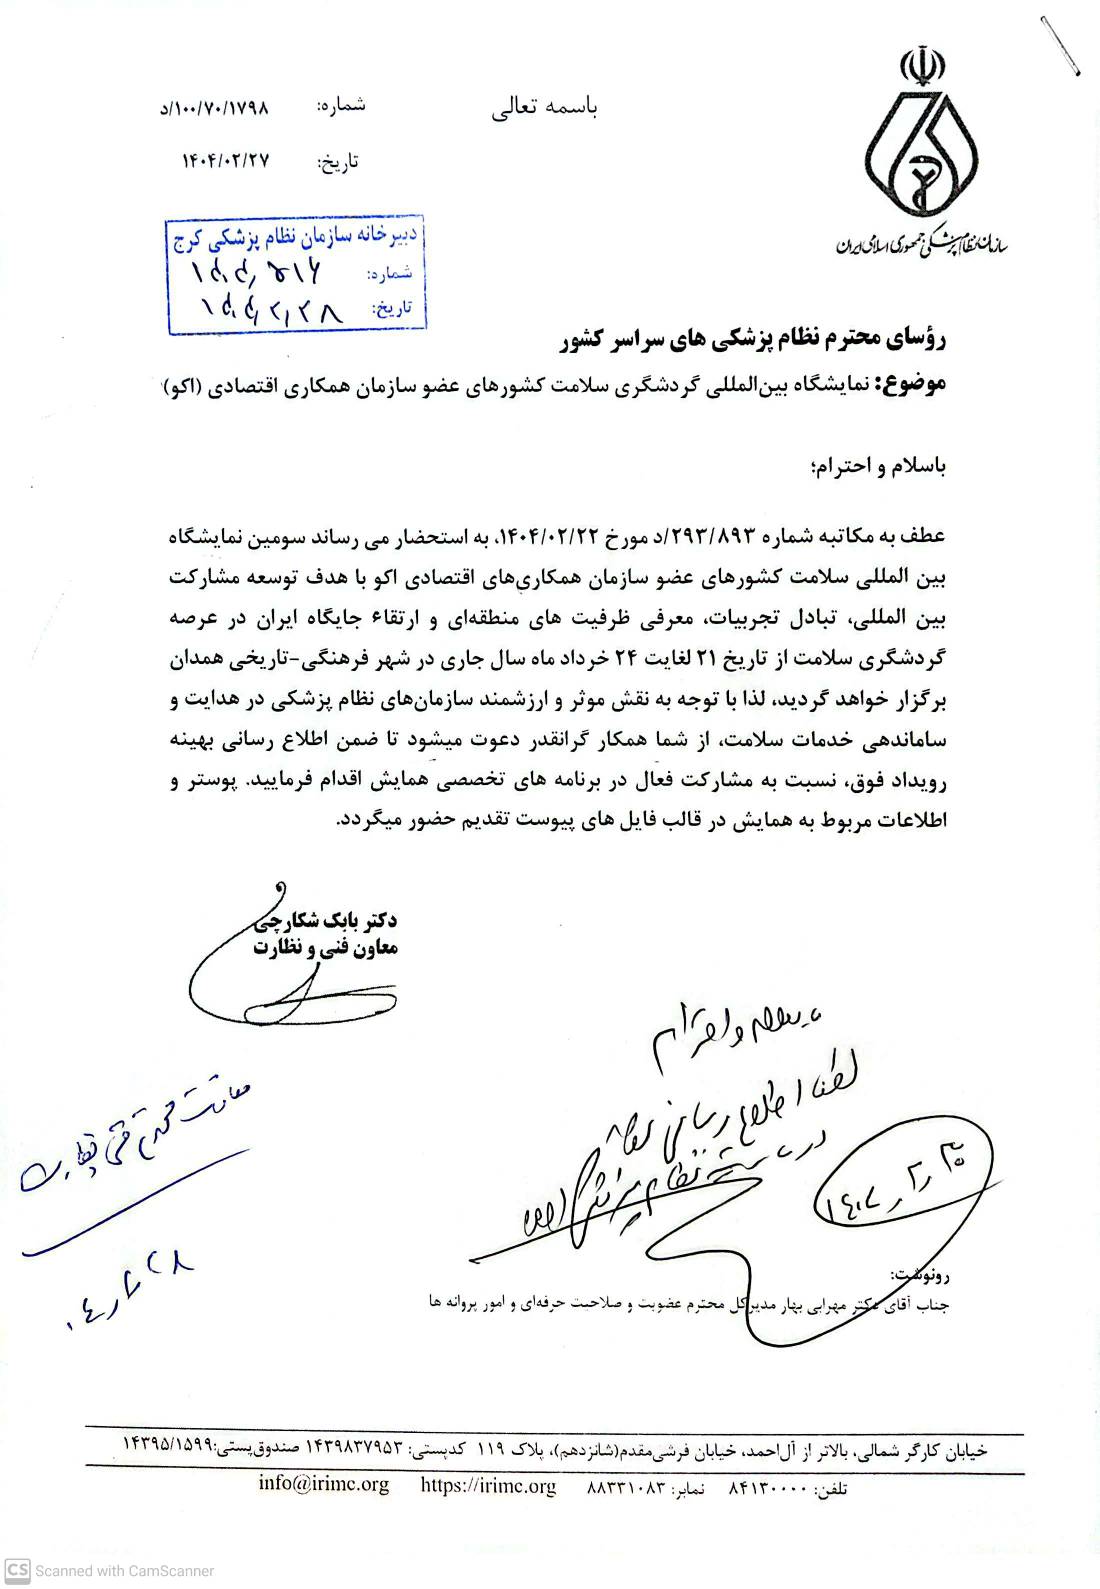 باسمه تعالی
شماره: ۱۰۰/۷۰/۱۷۹۸/د
تاریخ: ۱۴۰۴/۰۲/۲۷
سازمان نظام پزشکی جمهوری اسلامی ایران
دبیرخانه سازمان نظام پزشکی کرج
شماره:
تاریخ:
رؤسای محترم نظام پزشکی های سراسر کشور
موضوع: نمایشگاه بین‌المللی گردشگری سلامت کشورهای عضو سازمان همکاری اقتصادی (اکو)
باسلام و احترام؛
عطف به مکاتبه شماره ۲۹۳/۸۹۳/د مورخ ۱۴۰۴/۰۲/۲۲، به استحضار می رساند سومین نمایشگاه
بین المللی سلامت کشورهای عضو سازمان همکاری‌های اقتصادی اکو با هدف توسعه مشارکت
بین المللی، تبادل تجربیات، معرفی ظرفیت های منطقه‌ای و ارتقاء جایگاه ایران در عرصه
گردشگری سلامت از تاریخ ۲۱ لغایت ۲۴ خرداد ماه سال جاری در شهر فرهنگی-تاریخی همدان
برگزار خواهد گردید، لذا با توجه به نقش موثر و ارزشمند سازمان‌های نظام پزشکی در هدایت و
ساماندهی خدمات سلامت، از شما همکار گرانقدر دعوت میشود تا ضمن اطلاع رسانی بهینه
رویداد فوق، نسبت به مشارکت فعال در برنامه های تخصصی همایش اقدام فرمایید. پوستر و
اطلاعات مربوط به همایش در قالب فایل های پیوست تقدیم حضور میگردد.
دکتر بابک شکارچی
معاون فنی و نظارت
و احترام
لطفا اطلاع رسانی
در سایت نظام پزشکی
معاونت محترم فنی و نظارت
رونوشت:
جناب آقای دکتر مهرابی بهار مدیرکل محترم عضویت و صلاحیت حرفه‌ای و امور پروانه ها
خیابان کارگر شمالی، بالاتر از آل‌احمد، خیابان فرشی‌مقدم(شانزدهم)، پلاک ۱۱۹ کدپستی: ۱۴۳۹۸۳۷۹۵۳ صندوق‌پستی:۱۴۳۹۵/۱۵۹۹
تلفن: ۸۴۱۳۰۰۰۰ نمابر: ۸۸۳۳۱۰۸۳ https://irimc.org info@irimc.org
CS Scanned with CamScanner